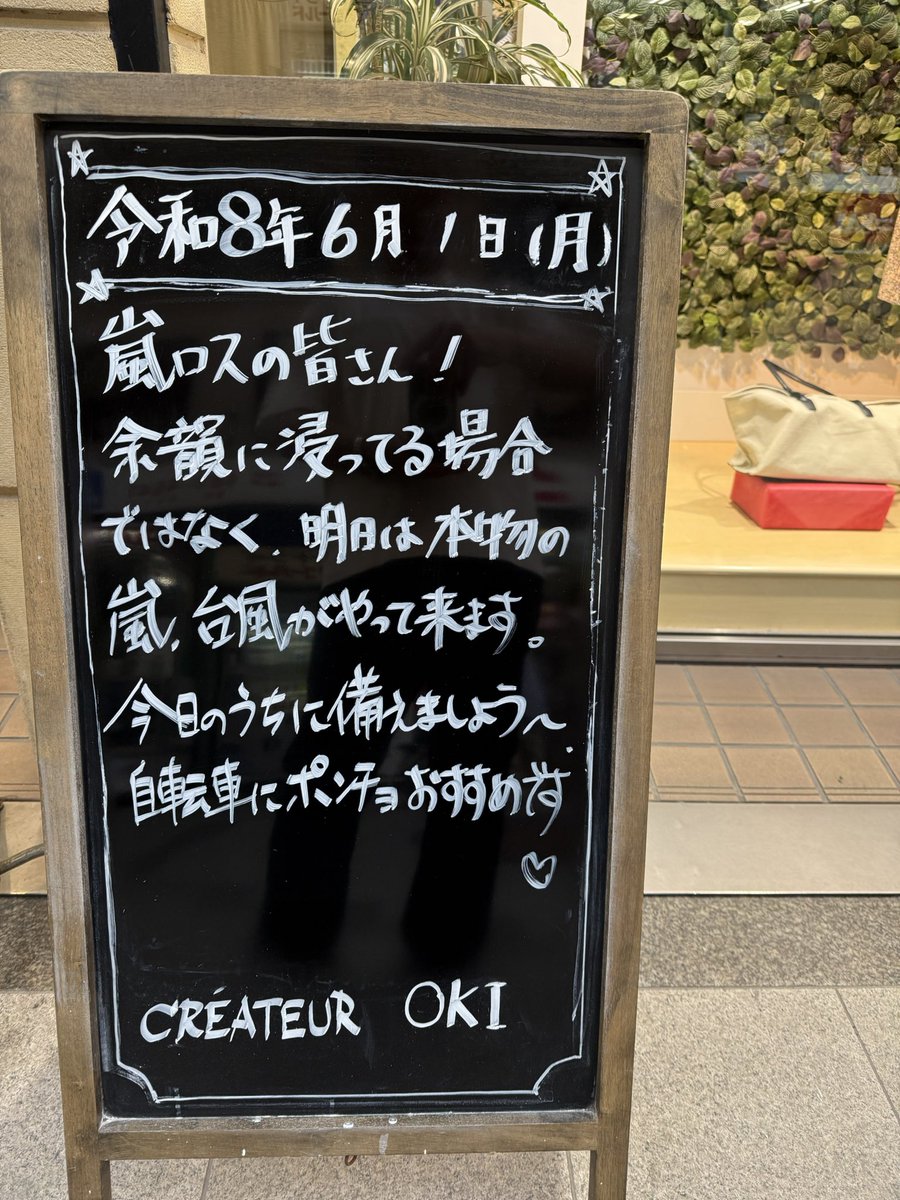 令和8年6月1日(月)
嵐ロスの皆さん!
余韻に浸ってる場合
ではなく、明日は本物の
嵐、台風がやって来ます。
今日のうちに備えましょう〜、
自転車にポンチョおすすめです
♡
CRÉATEUR OKI